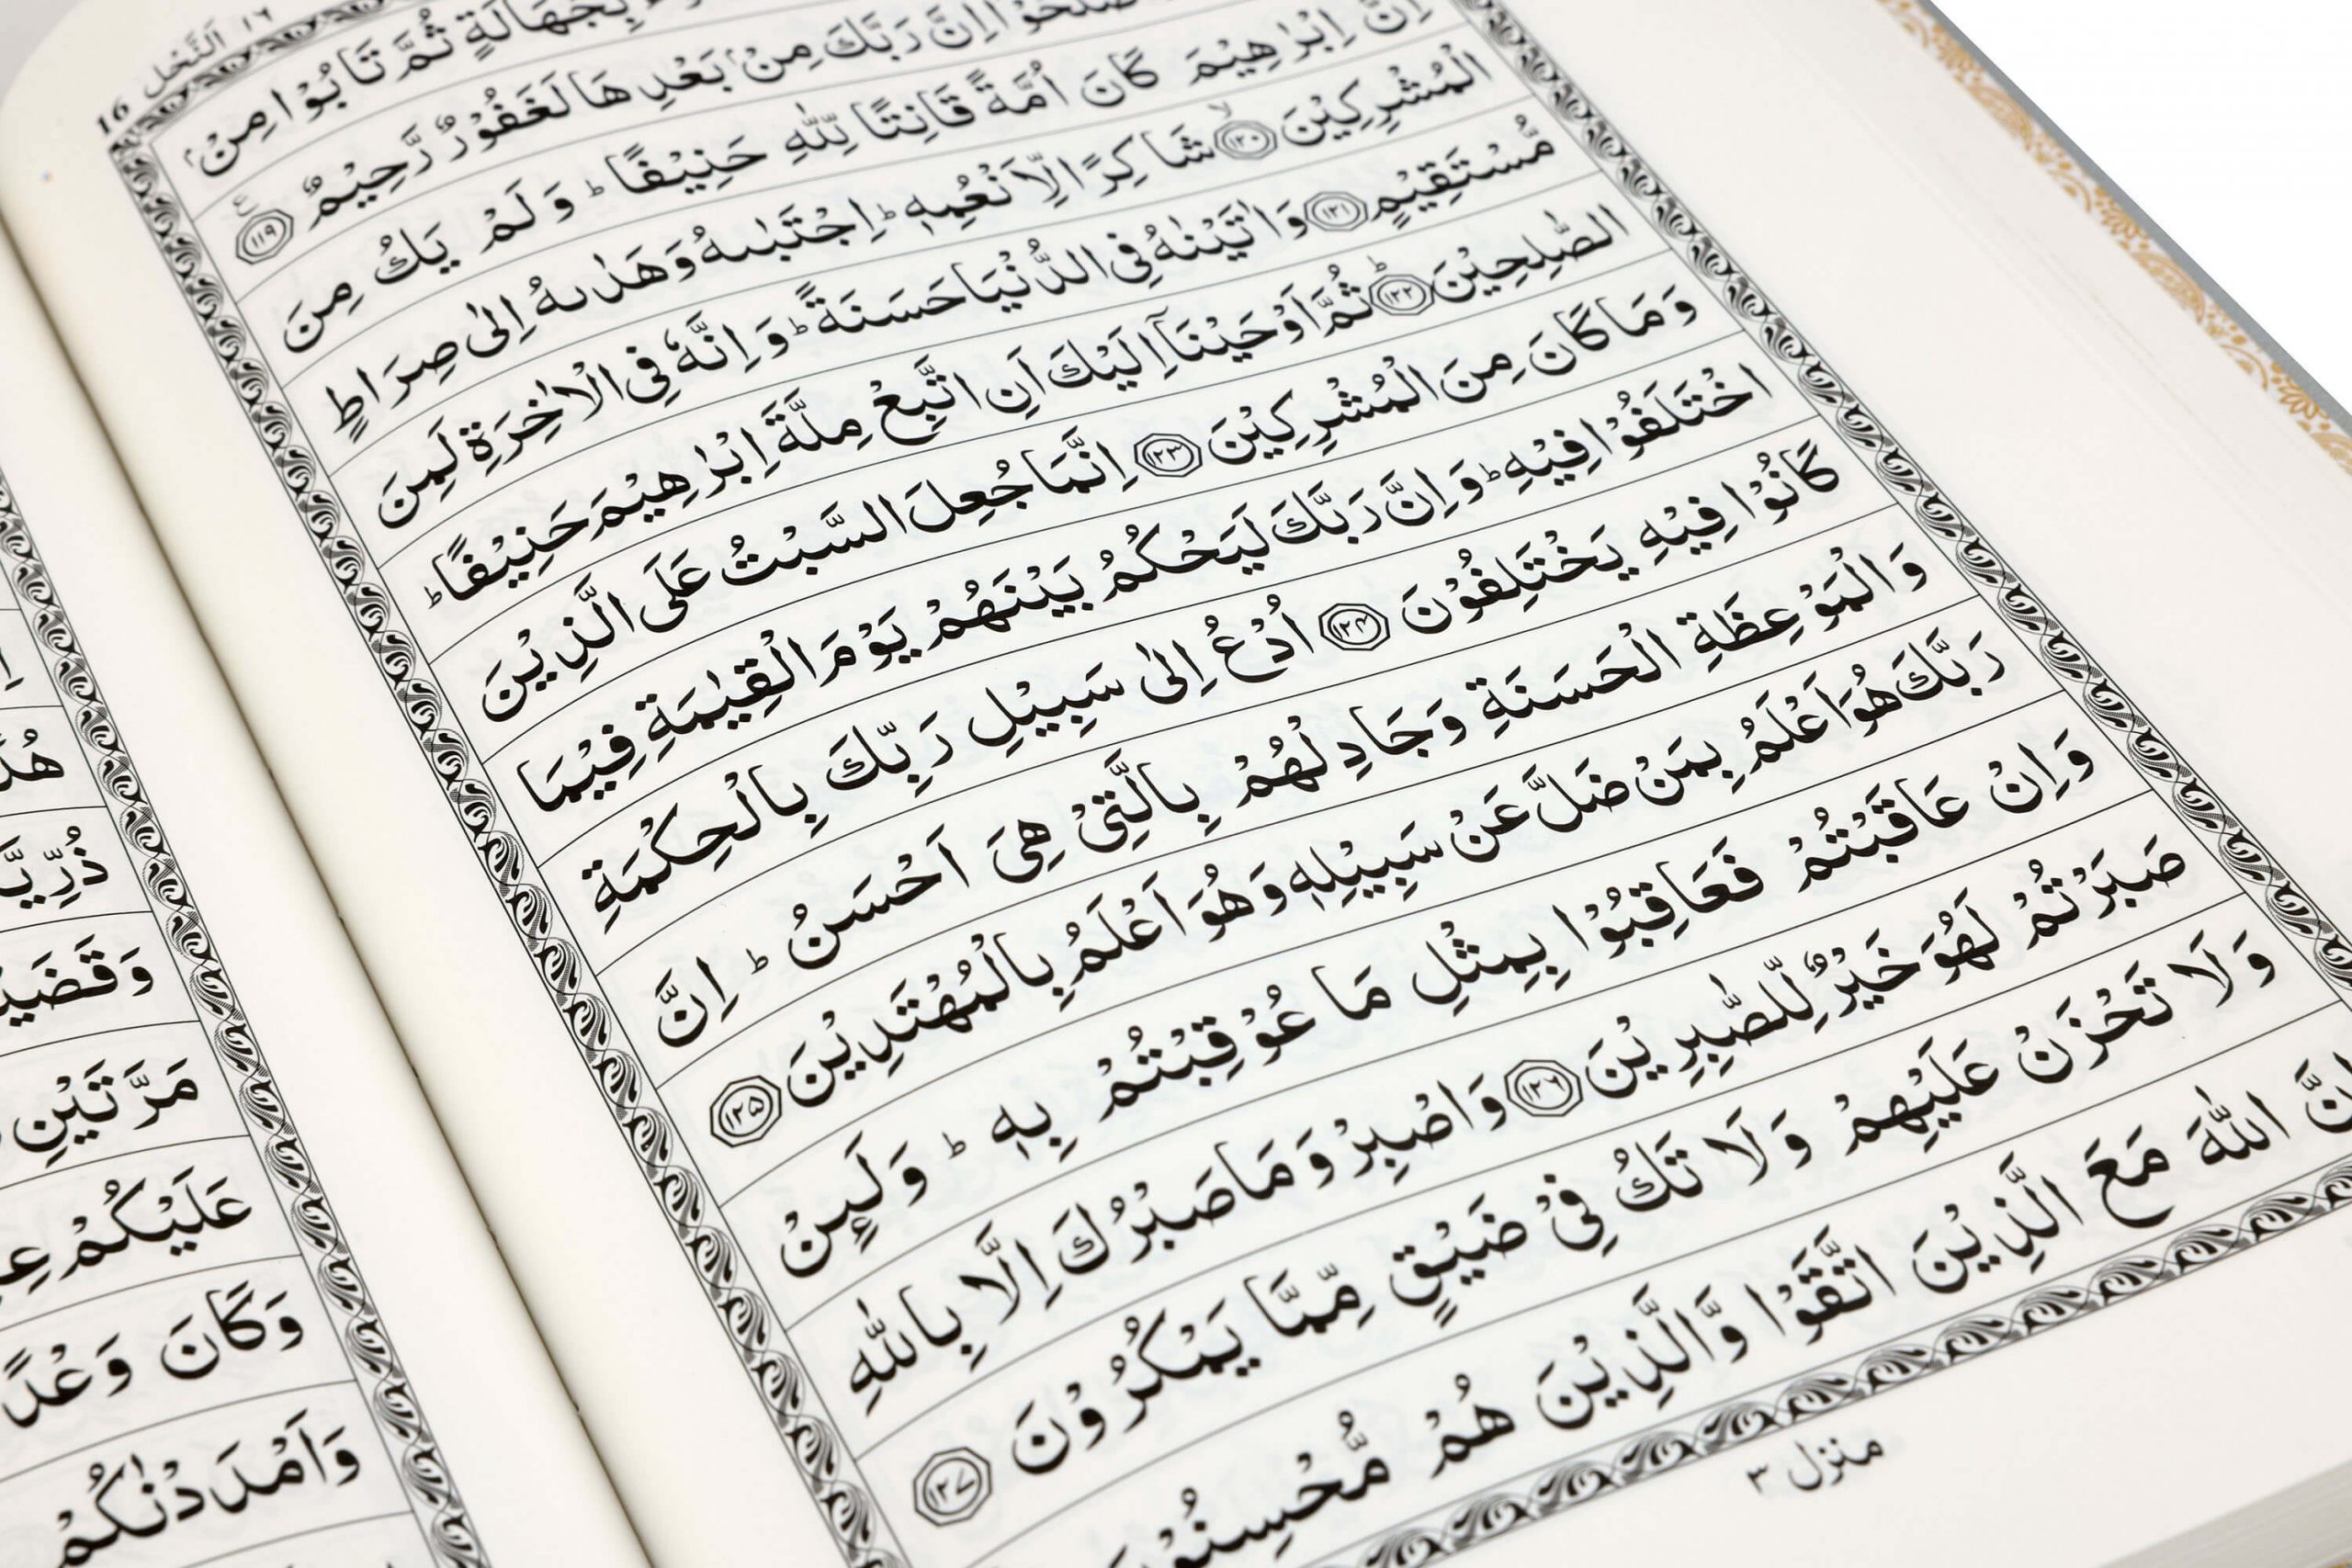 ١٦ اَلنَّحْل 16
بِجَهَالَةٍ ثُمَّ تَابُوْا مِنْۢ
اِنَّ رَبَّكَ مِنْۢ بَعْدِهَا لَغَفُوْرٌ رَّحِيْمٌ ١١٩
اِنَّ اِبْرٰهِيْمَ كَانَ اُمَّةً قَانِتًا لِّلّٰهِ حَنِيْفًا ؕ وَلَمْ يَكُ مِنَ
الْمُشْرِكِيْنَ ١٢٠ شَاكِرًا لِّاَنْعُمِهٖ ؕ اِجْتَبٰىهُ وَهَدٰىهُ اِلٰى صِرَاطٍ
مُّسْتَقِيْمٍ ١٢١ وَاٰتَيْنٰهُ فِى الدُّنْيَا حَسَنَةً ؕ وَاِنَّهٗ فِى الْاٰخِرَةِ لَمِنَ
الصّٰلِحِيْنَ ١٢٢ ثُمَّ اَوْحَيْنَاۤ اِلَيْكَ اَنِ اتَّبِعْ مِلَّةَ اِبْرٰهِيْمَ حَنِيْفًا ؕ
وَمَا كَانَ مِنَ الْمُشْرِكِيْنَ ١٢٣ اِنَّمَا جُعِلَ السَّبْتُ عَلَى الَّذِيْنَ
اخْتَلَفُوْا فِيْهِ ؕ وَاِنَّ رَبَّكَ لَيَحْكُمُ بَيْنَهُمْ يَوْمَ الْقِيٰمَةِ فِيْمَا
كَانُوْا فِيْهِ يَخْتَلِفُوْنَ ١٢٤ اُدْعُ اِلٰى سَبِيْلِ رَبِّكَ بِالْحِكْمَةِ
وَالْمَوْعِظَةِ الْحَسَنَةِ وَجَادِلْهُمْ بِالَّتِىْ هِىَ اَحْسَنُ ؕ اِنَّ
رَبَّكَ هُوَ اَعْلَمُ بِمَنْ ضَلَّ عَنْ سَبِيْلِهٖ وَهُوَ اَعْلَمُ بِالْمُهْتَدِيْنَ ١٢٥
وَاِنْ عَاقَبْتُمْ فَعَاقِبُوْا بِمِثْلِ مَا عُوْقِبْتُمْ بِهٖ ؕ وَلَىِٕنْ
صَبَرْتُمْ لَهُوَ خَيْرٌ لِّلصّٰبِرِيْنَ ١٢٦ وَاصْبِرْ وَمَا صَبْرُكَ اِلَّا بِاللّٰهِ
وَلَا تَحْزَنْ عَلَيْهِمْ وَلَا تَكُ فِىْ ضَيْقٍ مِّمَّا يَمْكُرُوْنَ ١٢٧
اِنَّ اللّٰهَ مَعَ الَّذِيْنَ اتَّقَوْا وَّالَّذِيْنَ هُمْ مُّحْسِنُوْنَ
منزل ٣
وَقَضَيْ
مَرَّتَيْنِ
عَلَيْكُمْ
وَكَانَ وَعْدًا
وَاَمْدَدْنٰكُمْ